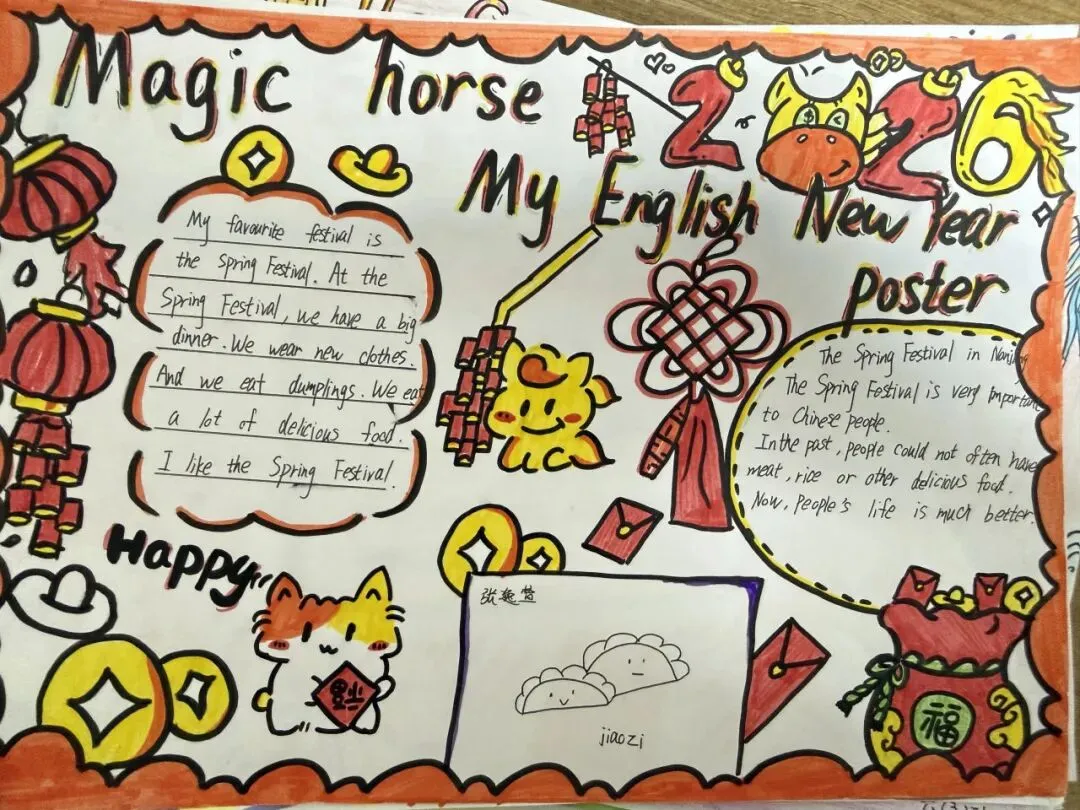 Magic horse 2026
My English New Year
poster
My favourite festival is
the Spring Festival. At the
Spring Festival, we have a big
dinner. We wear new clothes.
And we eat dumplings. We eat
a lot of delicious food.
I like the Spring Festival.
The Spring Festival in Nanjing
The Spring Festival is very important
to Chinese people.
In the past, people could not often have
meat, rice or other delicious food.
Now, People's life is much better.
Happy
福
张
jiaozi
福